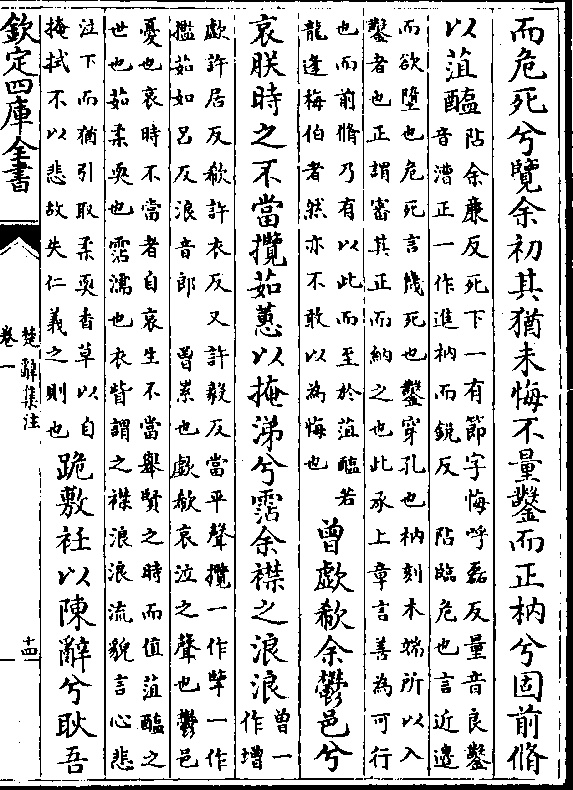 而危死兮覽余初其猶未悔不量鑿而正枘兮固前脩
以菹醢阽余廉反死下一有節字悔呼磊反量音良鑿
音漕正一作進枘而鋭反　阽臨危也言近邉
而欲墮也危死言㡬死也鑿穿孔也枘刻木端所以入
鑿者也正謂審其正而納之也此承上章言善為可行
也而前脩乃有以此而至於菹醢若
龍逄梅伯者然亦不敢以為悔也
曾歔欷余鬱邑兮
哀朕時之不當攬茹蕙以掩涕兮霑余襟之浪浪
曾一
作增
歔許居反欷許衣反又許毅反當平聲攬一作擥一作
擥茹如吕反浪音郎　曽累也歔欷哀泣之聲也鬱邑
憂也哀時不當者自哀生不當舉賢之時而值菹醢之
世也茹柔耎也霑濡也衣眥謂之襟浪浪流貌言心悲
泣下而猶引取柔耎香草以自
掩拭不以悲故失仁義之則也
跪敷衽以陳辭兮耿吾
欽定四庫全書
楚辭集注
卷一
十四